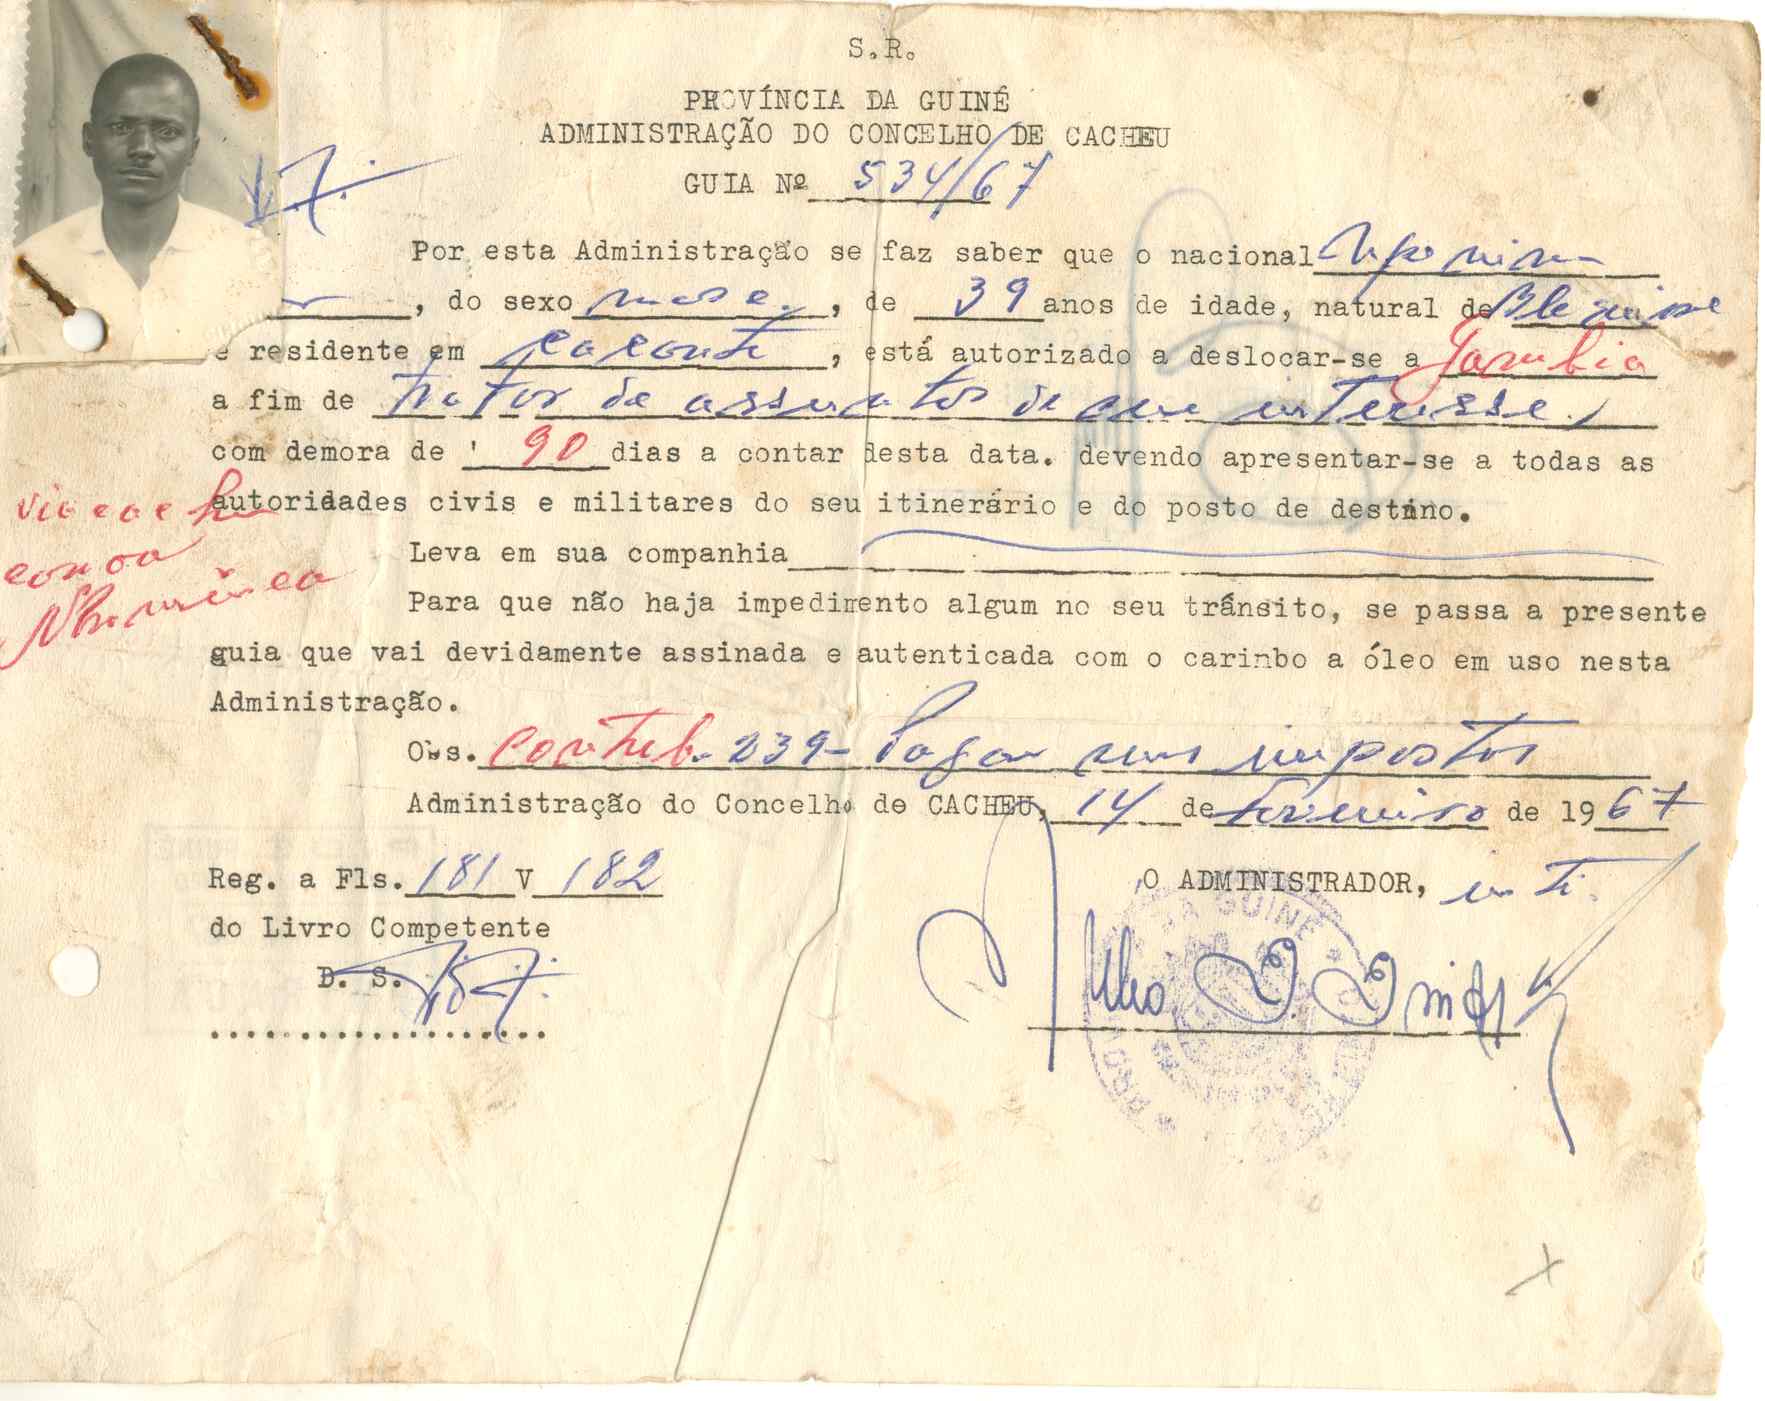 S.R.
PROVÍNCIA DA GUINÉ
ADMINISTRAÇÃO DO CONCELHO DE CACHEU
GUIA Nº 534/67
Por esta Administração se faz saber que o nacional
, do sexo masc. , de 39 anos de idade, natural de
e residente em , está autorizado a deslocar-se a Gambia
a fim de tratar de assuntos de seu interesse,
com demora de 90 dias a contar desta data. devendo apresentar-se a todas as
autoridades civis e militares do seu itinerário e do posto de destino.
Leva em sua companhia
Para que não haja impedimento algum no seu trânsito, se passa a presente
guia que vai devidamente assinada e autenticada com o carimbo a óleo em uso nesta
Administração.
Obs. Contrib. 239- Pagou seus impostos
Administração do Concelho de CACHEU, 14 de Fevereiro de 1967
Reg. a Fls. 181 V 182
do Livro Competente
D. S.
O ADMINISTRADOR, int.
DA GUINÉ
via
canoa